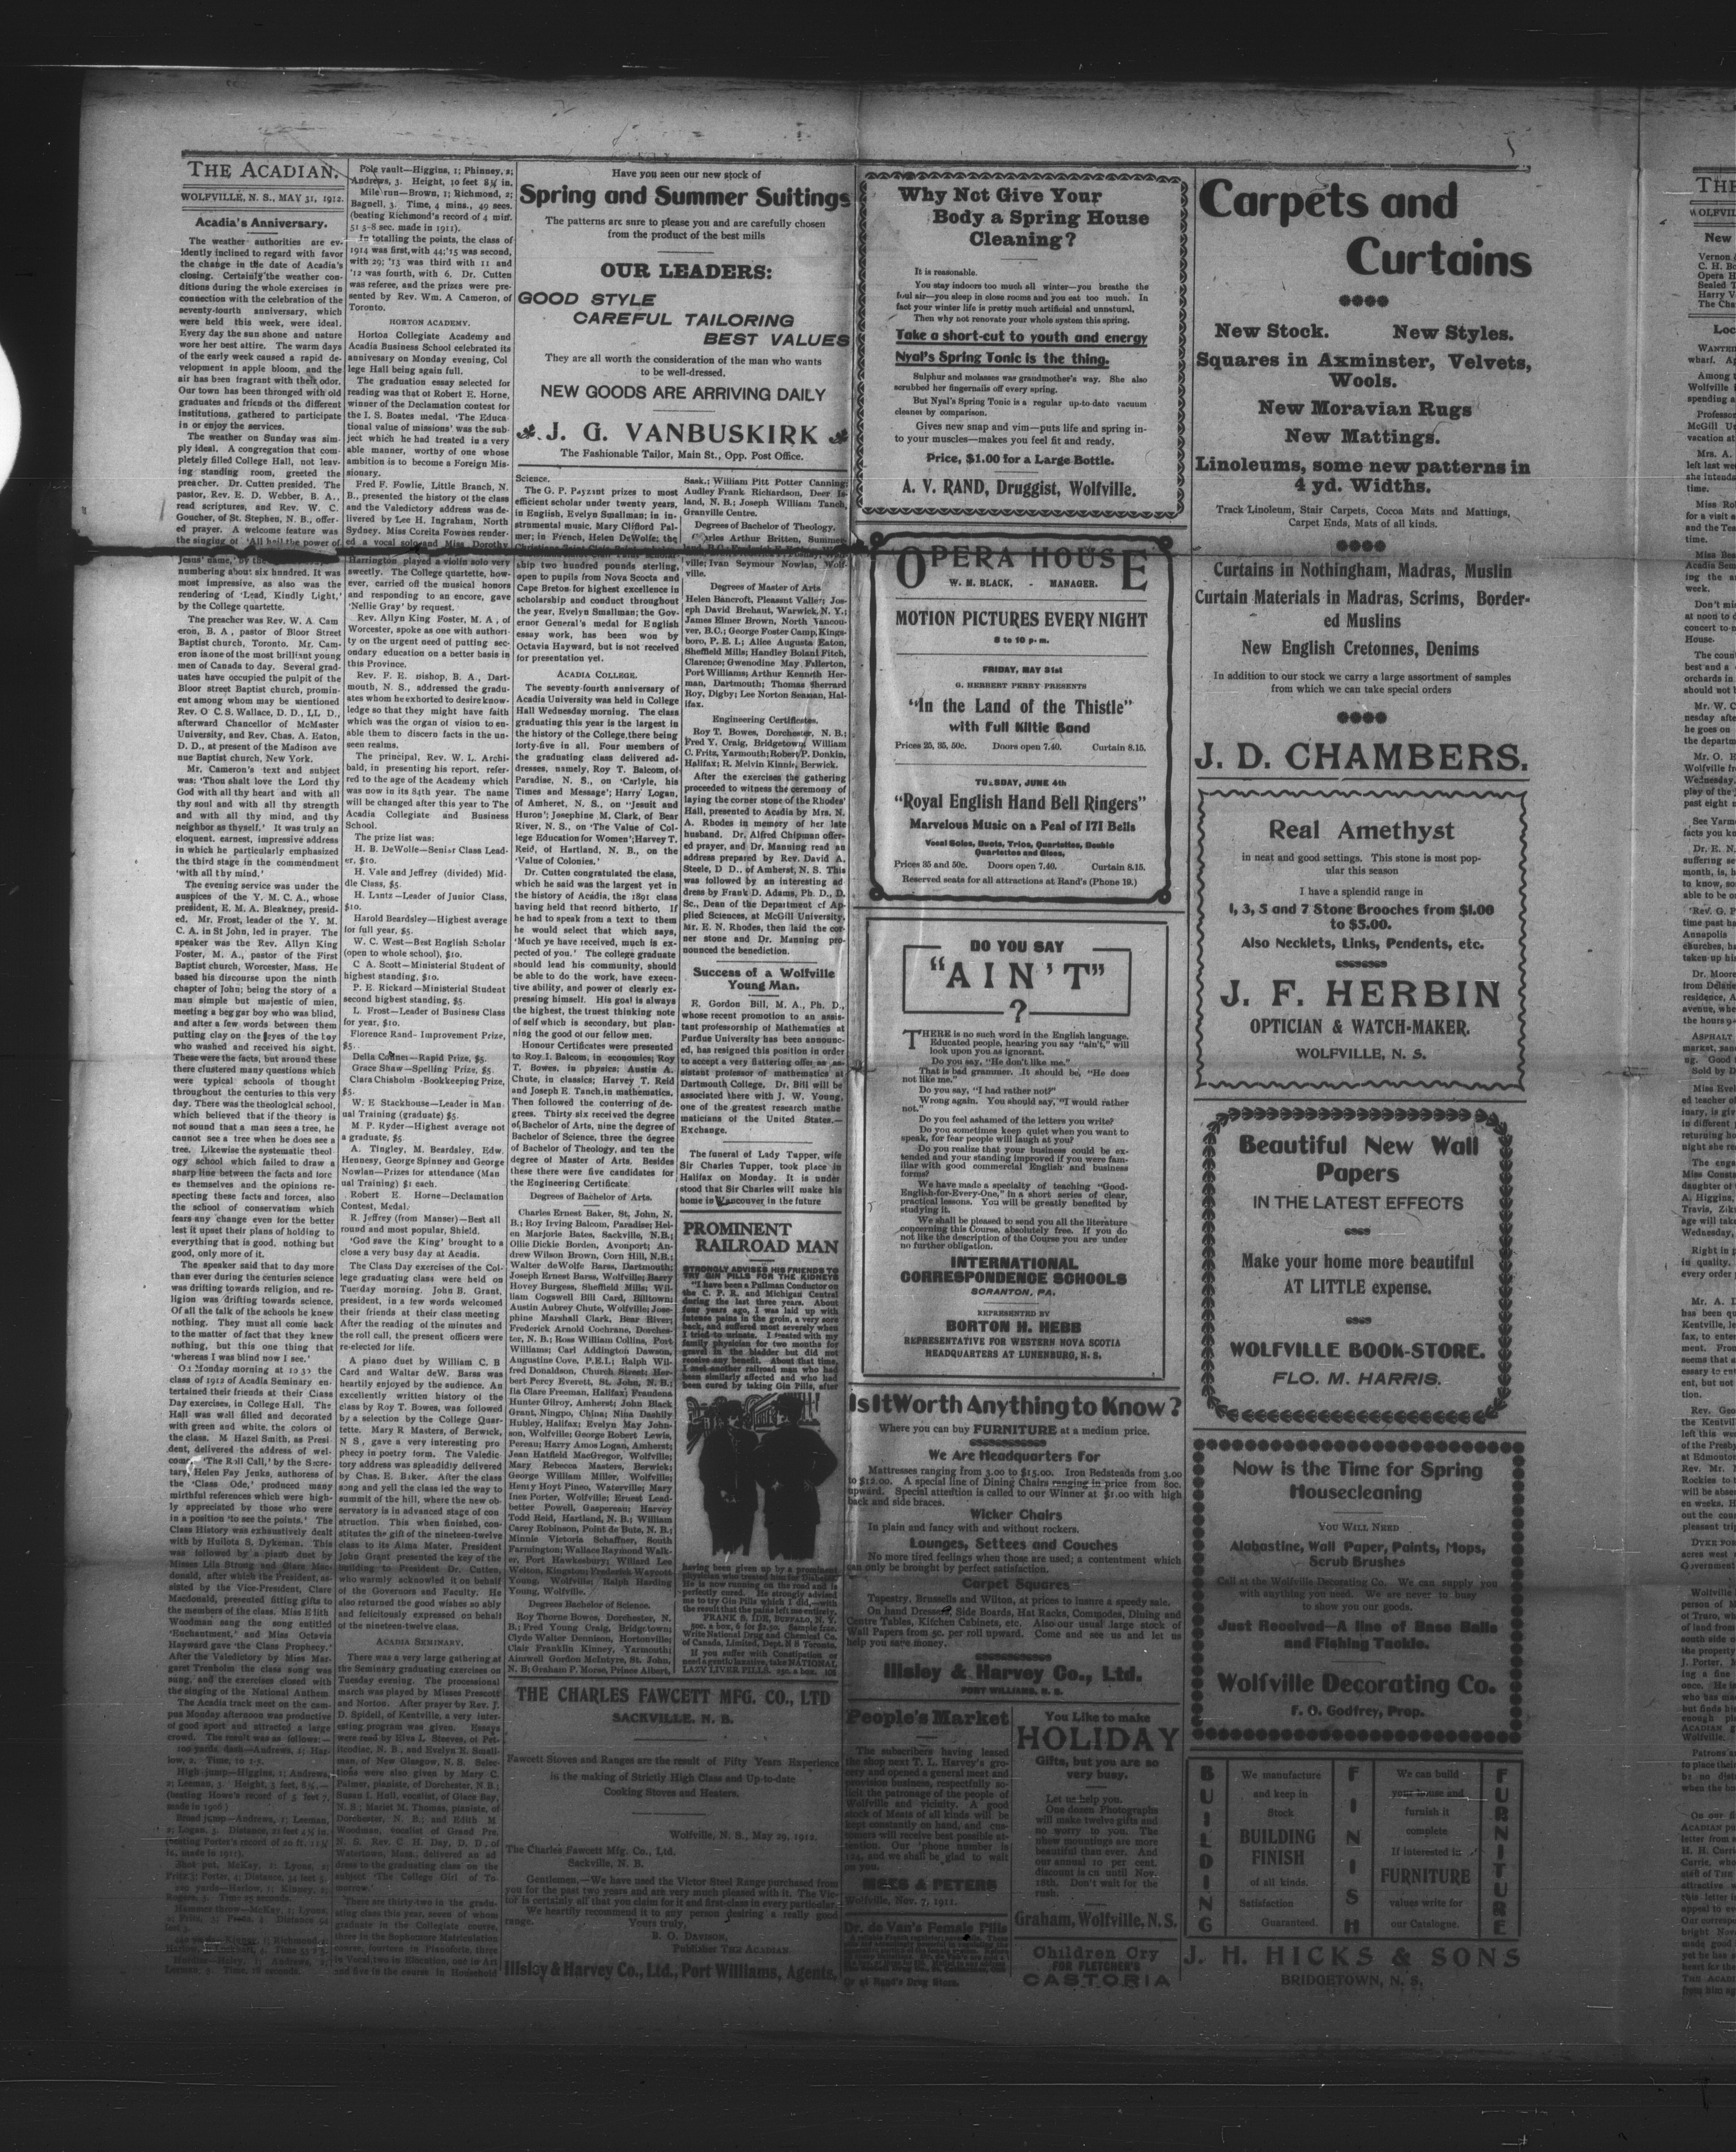 THE ACADIAN.
WOLFVILLE, N. S., MAY 31, 1912.
Acadia's Anniversary.
The weather authorities are ev-
idently inclined to regard with favor
the change in the date of Acadia's
closing. Certainly the weather con-
ditions during the whole exercises in
connection with the celebration of the
seventy-fourth anniversary, which
were held this week, were ideal.
Every day the sun shone and nature
wore her best attire. The warm days
of the early week caused a rapid de-
velopment in apple bloom, and the
air has been fragrant with their odor.
Our town has been thronged with old
graduates and friends of the different
institutions, gathered to participate
in or enjoy the services.
The weather on Sunday was sim-
ply ideal. A congregation that com-
pletely filled College Hall, not leav-
ing standing room, greeted the
preacher. Dr. Cutten presided. The
pastor, Rev. E. D. Webber, B. A.,
read scriptures, and Rev. W. C.
Goucher, of St. Stephen, N. B., offer-
ed prayer. A welcome feature was
the singing of 'All hail the power of
Jesus' name,' by the
numbering about six hundred. It was
most impressive, as also was the
rendering of 'Lead, Kindly Light,'
by the College quartette.
The preacher was Rev. W. A. Cam
eron, B. A., pastor of Bloor Street
Baptist church, Toronto. Mr. Cam-
eron is one of the most brilliant young
men of Canada to day. Several grad-
uates have occupied the pulpit of the
Bloor street Baptist church, promin-
ent among whom may be mentioned
Rev. O. C. S. Wallace, D. D., LL D.,
afterward Chancellor of McMaster
University, and Rev. Chas. A. Eaton,
D. D., at present of the Madison ave
nue Baptist church, New York.
Mr. Cameron's text and subject
was: 'Thou shalt love the Lord thy
God with all thy heart and with all
thy soul and with all thy strength
and with all thy mind, and thy
neighbor as thyself.' It was truly an
eloquent, earnest, impressive address
in which he particularly emphasized
the third stage in the commendment
'with all thy mind.'
The evening service was under the
auspices of the Y. M. C. A., whose
president, E. M. A. Bleakney, presid-
ed. Mr. Frost, leader of the Y. M.
C. A. in St John, led in prayer. The
speaker was the Rev. Allyn King
Foster, M. A., pastor of the First
Baptist church, Worcester, Mass. He
based his discourse upon the ninth
chapter of John; being the story of a
man simple but majestic of mien,
meeting a beggar boy who was blind,
and after a few words between them
putting clay on the eyes of the boy
who washed and received his sight.
These were the facts, but around these
there clustered many questions which
were typical schools of thought
throughout the centuries to this very
day. There was the theological school,
which believed that if the theory is
not sound that a man sees a tree, he
cannot see a tree when he does see a
tree. Likewise the systematic theol-
ogy school which failed to draw a
sharp line between the facts and forc
es themselves and the opinions re-
specting these facts and forces, also
the school of conservatism which
fears any change even for the better
lest it upset their plans of holding to
everything that is good, nothing but
good, only more of it.
The speaker said that to day more
than ever during the centuries science
was drifting towards religion, and re-
ligion was drifting towards science.
Of all the talk of the schools he knew
nothing. They must all come back
to the matter of fact that they knew
nothing, but this one thing that
'whereas I was blind now I see.'
On Monday morning at 10 30 the
class of 1912 of Acadia Seminary en-
tertained their friends at their Class
Day exercises, in College Hall. The
Hall was well filled and decorated
with green and white, the colors of
the class. M Hazel Smith, as Presi-
dent, delivered the address of wel-
come. 'The Roll Call,' by the Secre-
tary, Helen Fay Jenks, authoress of
the 'Class Ode,' produced many
mirthful references which were high-
ly appreciated by those who were
in a position 'to see the points.' The
Class History was exhaustively dealt
with by Hullota S. Dykeman. This
was followed by a piano duet by
Misses Lila Strong and Clare Mac-
donald, after which the President, as-
sisted by the Vice-President, Clare
Macdonald, presented fitting gifts to
the members of the class. Miss Edith
Woodman sang the song entitled
'Enchantment,' and Miss Octavia
Hayward gave 'the Class Prophecy.'
After the Valedictory by Miss Mar-
garet Trenholm the class song was
sung, and the exercises closed with
the singing of the National Anthem.
The Acadia track meet on the cam-
pus Monday afternoon was productive
of good sport and attracted a large
crowd. The result was as follows:—
Pole vault—Higgins, 1; Phinney, 2;
Andrews, 3. Height, 10 feet 8¼ in.
Mile run—Brown, 1; Richmond, 2;
Bagnell, 3. Time, 4 mins., 49 secs.
(beating Richmond's record of 4 min.
51 5-8 sec. made in 1911).
In totalling the points, the class of
1914 was first, with 44; '15 was second,
with 29; '13 was third with 11 and
'12 was fourth, with 6. Dr. Cutten
was referee, and the prizes were pre-
sented by Rev. Wm. A. Cameron, of
Toronto.
HORTON ACADEMY.
Horton Collegiate Academy and
Acadia Business School celebrated its
annivesary on Monday evening, Col
lege Hall being again full.
The graduation essay selected for
reading was that of Robert E. Horne,
winner of the Declamation contest for
the I. S. Boates medal. 'The Educa
tional value of missions' was the sub-
ject which he had treated in a very
able manner, worthy of one whose
ambition is to become a Foreign Mis-
sionary.
Fred F. Fowlie, Little Branch, N.
B., presented the history of the class
and the Valedictory address was de-
livered by Lee H. Ingraham, North
Sydney. Miss Coreita Fownes render-
ed a vocal solo and Miss Dorothy
Harrington played a violin solo very
sweetly. The College quartette, how-
ever, carried off the musical honors
and responding to an encore, gave
'Nellie Gray' by request.
Rev. Allyn King Foster, M. A., of
Worcester, spoke as one with authori-
ty on the urgent need of putting sec-
ondary education on a better basis in
this Province.
Rev. F. E. Bishop, B. A., Dart-
mouth, N. S., addressed the gradu-
ates whom he exhorted to desire know-
ledge so that they might have faith
which was the organ of vision to en-
able them to discern facts in the un-
seen realms.
The principal, Rev. W. L. Archi-
bald, in presenting his report, refer-
red to the age of the Academy which
was now in its 84th year. The name
will be changed after this year to The
Acadia Collegiate and Business
School.
The prize list was:
H. B. DeWolfe—Senior Class Lead-
er, $10.
H. Vale and Jeffrey (divided) Mid-
dle Class, $5.
H. Lantz—Leader of Junior Class,
$10.
Harold Beardsley—Highest average
for full year, $5.
W. C. West—Best English Scholar
(open to whole school), $10.
C A. Scott—Ministerial Student of
highest standing, $10.
P. E. Rickard—Ministerial Student
second highest standing, $5.
L. Frost—Leader of Business Class
for year, $10.
Florence Rand—Improvement Prize,
$5.
Della Colner—Rapid Prize, $5.
Grace Shaw—Spelling Prize, $5.
Clara Chisholm-Bookkeeping Prize,
$5.
W. E Stackhouse—Leader in Man-
ual Training (graduate) $5.
M. P. Ryder—Highest average not
a graduate, $5.
A. Tingley, M. Beardsley, Edw.
Hennesy, George Spinney and George
Nowlan—Prizes for attendance (Man
ual Training) $1 each.
Robert E. Horne—Declamation
Contest, Medal.
R. Jeffrey (from Manser)—Best all
round and most popular, Shield.
'God save the King' brought to a
close a very busy day at Acadia.
The Class Day exercises of the Col-
lege graduating class were held on
Tuesday morning. John B. Grant,
president, in a few words welcomed
their friends at their class meeting
After the reading of the minutes and
the roll call, the present officers were
re-elected for life.
A piano duet by William C. B
Card and Waltar deW. Barss was
heartily enjoyed by the audience. An
excellently written history of the
class by Roy T. Bowes, was followed
by a selection by the College Quar-
tette. Mary R Masters, of Berwick,
N S., gave a very interesting pro
phecy in poetry form. The Valedic-
tory address was splendidly delivered
by Chas. E. Baker. After the class
song and yell the class led the way to
summit of the hill, where the new ob-
servatory is in advanced stage of con
struction. This when finished, con-
stitutes the gift of the nineteen-twelve
class to its Alma Mater. President
John Grant presented the key of the
building to President Dr. Cutten,
who warmly acknowled it on behalf
of the Governors and Faculty. He
also returned the good wishes so ably
and felicitously expressed on behalf
of the nineteen-twelve class.
ACADIA SEMINARY.
There was a very large gathering at
the Seminary graduating exercises on
Tuesday evening. The processional
march was played by Misses Prescott
and Norton. After prayer by Rev. J.
D. Spidell, of Kentville, a very inter-
esting program was given. Essays
were read by Elva L. Steeves, of Pet-
itcodiac, N. B., and Evelyn E. Small-
man, of New Glasgow, N. S. Selec-
tions were also given by Mary C.
Palmer, pianiste, of Dorchester, N. B.;
Susan I. Hull, vocalist, of Glace Bay,
N. S.; Muriel M. Thomas, pianiste, of
Dorchester, N. B.; and Edith M
Woodman, vocalist of Grand Pre,
N. S. Rev. C. H. Day, D. D., of
Watertown, Mass., delivered an ad
dress to the graduating class on the
subject 'The College Girl of To-
morrow.'
Have you seen our new stock of
Spring and Summer Suitings
The patterns are sure to please you and are carefully chosen
from the product of the best mills
OUR LEADERS:
GOOD STYLE
CAREFUL TAILORING
BEST VALUES
They are all worth the consideration of the man who wants
to be well-dressed.
NEW GOODS ARE ARRIVING DAILY
J. G. VANBUSKIRK
The Fashionable Tailor, Main St., Opp. Post Office.
Science.
The G. P. Payzant prizes to most
efficient scholar under twenty years,
in English, Evelyn Smallman; in in-
strumental music, Mary Clifford Pal-
mer; in French, Helen DeWolfe; the
ship two hundred pounds sterling,
open to pupils from Nova Scocta and
Cape Breton for highest excellence in
scholarship and conduct throughout
the year, Evelyn Smallman; the Gov-
ernor General's medal for English
essay work, has been won by
Octavia Hayward, but is not received
for presentation yet.
ACADIA COLLEGE.
The seventy-fourth anniversary of
Acadia University was held in College
Hall Wednesday morning. The class
graduating this year is the largest in
the history of the College, there being
forty-five in all. Four members of
the graduating class delivered ad-
dresses, namely, Roy T. Balcom, of
Paradise, N. S., on 'Carlyle, his
Times and Message'; Harry Logan,
of Amheret, N. S., on "Jesuit and
Huron'; Josephine M. Clark, of Bear
River, N. S., on 'The Value of Col-
lege Education for Women'; Harvey T.
Reid, of Hartland, N. B., on the
'Value of Colonies.'
Dr. Cutten congratulated the class,
which he said was the largest yet in
the history of Acadia, the 1891 class
having held that record hitherto. If
he had to speak from a text to them
he would select that which says,
'Much ye have received, much is ex-
pected of you.' The college graduate
should lead his community, should
be able to do the work, have execu-
tive ability, and power of clearly ex-
pressing himself. His goal is always
the highest, the truest thinking note
of self which is secondary, but plan-
ning the good of our fellow men.
Honour Certificates were presented
to Roy I. Balcom, in economics; Roy
T. Bowes, in physics; Austin A.
Chute, in classics; Harvey T. Reid
and Joseph E. Tanch, in mathematics.
Then followed the conterring of de-
grees. Thirty six received the degree
of Bachelor of Arts, nine the degree of
Bachelor of Science, three the degree
of Bachelor of Theology, and ten the
degree of Master of Arts. Besides
these there were five candidates for
the Engineering Certificate.
Degrees of Bachelor of Arts.
Charles Ernest Baker, St, John, N.
B.; Roy Irving Balcom, Paradise; Hel-
en Marjorie Bates, Sackville, N.B.;
Ollie Dickie Borden, Avonport; An-
drew Wilson Brown, Corn Hill, N.B.;
Walter deWolfe Barss, Dartmouth;
Joseph Ernest Barss, Wolfville; Barry
Hovey Burgess, Sheffield Mills; Wil-
liam Cogswell Bill Card, Billtown;
Austin Aubrey Chute, Wolfville; Jose-
phine Marshall Clark, Bear River;
Frederick Arnold Cochrane, Dorches-
ter, N. B.; Ross William Collins, Port
Williams; Carl Addington Dawson,
Augustine Cove, P.E.I.; Ralph Wil-
fred Donaldson, Church Street; Her-
bert Percy Everett, St. John, N. B.;
Ila Clare Freeman, Halifax; Fraudena
Hunter Gilroy, Amherst; John Black
Grant, Ningpo, China; Nina Dashily
Hubley, Halifax; Evelyn May John-
son, Wolfville; George Robert Lewis,
Pereau; Harry Amos Logan, Amherst;
Jean Hatfield MacGregor, Wolfville;
Mary Rebecca Masters, Berwick;
George William Miller, Wolfville;
Henry Hoyt Pineo, Waterville; Mary
Inez Porter, Wolfville; Ernest Lead-
better Powell, Gaspereau; Harvey
Todd Reid, Hartland, N. B.; William
Carey Robinson, Point de Bute, N. B.;
Minnie Victoria Schaffner, South
Farmington; Wallace Raymond Walk-
er, Port Hawkesbury; Willard Lee
Welton, Kingston; Frederick Waycott
Young, Wolfville; Ralph Harding
Young, Wolfville.
Degrees Bachelor of Science.
Roy Thorne Bowes, Dorchester, N.
B.; Fred Young Craig, Bridgetown;
Clyde Walter Dennison, Hortonville;
Clair Franklin Kinney, Yarmouth;
Aimwell Gordon McIntyre, St. John,
N. B; Graham P. Morse, Prince Albert,
Sask.; William Pitt Potter Canning;
Audley Frank Richardson, Deer Is-
land, N. B.; Joseph William Tanch,
Granville Centre.
Degrees of Bachelor of Theology.
Charles Arthur Britten, Summer-
ville; Ivan Seymour Nowlan, Wolf-
ville.
Degrees of Master of Arts
Helen Bancroft, Pleasnt Valley; Jos-
eph David Brehaut, Warwick, N. Y.;
James Elmer Brown, North Vancou-
ver, B.C.; George Foster Camp, Kings-
boro, P. E. I.; Alice Augusta Eaton,
Sheffield Mills; Handley Bolani Fitch,
Clarence; Gwenodine May Fullerton,
Port Williams; Arthur Kenneth Her-
man, Dartmouth; Thomas Sherrard
Roy, Digby; Lee Norton Seaman, Hal-
ifax.
Engineering Certificates.
Roy T. Bowes, Dorchester, N. B.;
Fred Y. Craig, Bridgetown; William
C. Frits, Yarmouth; Robert P. Donkin,
Halifax; R. Melvin Kinnie, Berwick.
After the exercises the gathering
proceeded to witness the ceremony of
laying the corner stone of the Rhodes'
Hall, presented to Acadia by Mrs. N.
A. Rhodes in memory of her late
husband. Dr. Alfred Chipman offer-
ed prayer, and Dr. Manning read an
address prepared by Rev. David A.
Steele, D D., of Amherst, N. S. This
was followed by an interesting ad
dress by Frank D. Adams, Ph. D., D.
Sc., Dean of the Department of Ap-
plied Sciences, at McGill University.
Mr. E. N. Rhodes, then laid the cor
ner stone and Dr. Manning pro-
nounced the benediction.
Success of a Wolfville
Young Man.
E. Gordon Bill, M. A., Ph. D.,
whose recent promotion to an assis-
tant professorship of Mathematics at
Purdue University has been announc-
ed, has resigned this position in order
to accept a very flattering offer as as-
sistant professor of mathematics at
Dartmouth College. Dr. Bill will be
associated there with J. W. Young,
one of the greatest research mathe
maticians of the United States.—
Exchange.
The funeral of Lady Tupper, wife
Sir Charles Tupper, took place in
Halifax on Monday. It is under
stood that Sir Charles will make his
home in Vancouver in the future
PROMINENT
RAILROAD MAN
STRONGLY ADVISES HIS FRIENDS TO
TRY GIN PILLS FOR THE KIDNEYS
"I have been a Pullman Conductor on
the C. P. R. and Michigan Central
during the last three years. About
four years ago, I was laid up with
intense pains in the groin, a very sore
back, and suffered most severely when
I tried to urinate. I treated with my
family physician for two months for
gravel in the bladder but did not
receive any benefit. About that time,
I met another railroad man who had
been similarly affected and who had
been cured by taking Gin Pills, after
having been given up by a prominent
physician who treated him for Diabetes.
He is now running on the road and is
perfectly cured. He strongly advised
me to try Gin Pills which I did,—with
the result that the pains left me entirely.
FRANK S. IDE, BUFFALO, N. Y.
50c. a box, 6 for $2.50. Sample free.
Write National Drug and Chemical Co.
of Canada, Limited, Dept. N S Toronto.
If you suffer with Constipation or
need a gentle laxative, take NATIONAL
LAZY LIVER PILLS. 25c. a box.
THE CHARLES FAWCETT MFG. CO., LTD
SACKVILLE. N. B.
Fawcett Stoves and Ranges are the result of Fifty Years Experience
in the making of Strictly High Class and Up-to-date
Cooking Stoves and Heaters.
Wolfville, N. S., May 29, 1912.
The Charles Fawcett Mfg. Co., Ltd.
Sackville, N. B.
Gentlemen,—We have used the Victor Steel Range purchased from
you for the past two years and are very much pleased with it. The Vic-
tor is certainly all that you claim for it and first-class in every particular.
We heartily recommend it to any person desiring a really good
range.
Yours truly,
B. O. DAVISON,
Publisher THE ACADIAN
Illsley & Harvey Co., Ltd., Port Williams, Agents.
Why Not Give Your
Body a Spring House
Cleaning?
It is reasonable.
You stay indoors too much all winter—you breathe the
foul air—you sleep in close rooms and you eat too much. In
fact your winter life is pretty much artificial and unnatural.
Then why not renovate your whole system this spring.
Take a short-cut to youth and energy
Nyal's Spring Tonic is the thing.
Sulphur and molasses was grandmother's way. She also
scrubbed her fingernails off every spring.
But Nyal's Spring Tonic is a regular up-to-date vacuum
cleaner by comparison.
Gives new snap and vim—puts life and spring in-
to your muscles—makes you feel fit and ready.
Price, $1.00 for a Large Bottle.
A. V. RAND, Druggist, Wolfville.
OPERA HOUSE
W. M. BLACK, - MANAGER.
MOTION PICTURES EVERY NIGHT
8 to 10 p. m.
FRIDAY, MAY 31st
G. HERBERT PERRY PRESENTS
"In the Land of the Thistle"
with Full Kiltie Band
Prices 25, 35, 50c. Doors open 7.40. Curtain 8.15.
TUESDAY, JUNE 4th
"Royal English Hand Bell Ringers"
Marvelous Music on a Peal of 171 Bells
Vocal Solos, Duets, Trios, Quartettes, Double
Quartettes and Glees,
Prices 35 and 50c. Doors open 7.40. Curtain 8.15.
Reserved seats for all attractions at Rand's (Phone 19.)
DO YOU SAY
"AIN'T"
?
THERE is no such word in the English language.
Educated people, hearing you say "ain't," will
look upon you as ignorant.
Do you say, "He don't like me."
That is bad grammer. It should be, "He does
not like me."
Do you say, "I had rather not?"
Wrong again. You should say, "I would rather
not."
Do you feel ashamed of the letters you write?
Do you sometimes keep quiet when you want to
speak, for fear people will laugh at you?
Do you realize that your business could be ex-
tended and your standing improved if you were fam-
iliar with good commercial English and business
forms?
We have made a specialty of teaching "Good-
English-for-Every-One," in a short series of clear,
practical lessons. You will be greatly benefited by
studying it.
We shall be pleased to send you all the literature
concerning this Course, absolutely free. If you do
not like the description of the Course you are under
no further obligation.
INTERNATIONAL
CORRESPONDENCE SCHOOLS
SCRANTON, PA.
REPRESENTED BY
BORTON H. HEBB
REPRESENTATIVE FOR WESTERN NOVA SCOTIA
HEADQUARTERS AT LUNENBURG, N. S.
Is It Worth Anything to Know?
Where you can buy FURNITURE at a medium price.
We Are Headquarters For
Mattresses ranging from 3.00 to $15.00. Iron Bedsteads from 3.00
to $12.00. A special line of Dining Chairs ranging in price from 80c.
upward. Special attention is called to our Winner at $1.00 with high
back and side braces.
Wicker Chairs
In plain and fancy with and without rockers.
Lounges, Settees and Couches
No more tired feelings when those are used; a contentment which
can only be brought by perfect satisfaction.
Carpet Squares
Tapestry, Brussells and Wilton, at prices to insure a speedy sale.
On hand Dresses, Side Boards, Hat Racks, Commodes, Dining and
Centre Tables, Kitchen Cabinets, etc. Also our usual large stock of
Wall Papers from 5c. per roll upward. Come and see us and let us
help you save money.
Illsley & Harvey Co., Ltd.
PORT WILLIAMS, N. S.
People's Market
The subscribers having leased
the shop next T. L. Harvey's gro-
cery and opened a general meat and
provision business, respectfully so-
licit the patronage of the people of
Wolfville and vicinity. A good
stock of Meats of all kinds will be
kept constantly on hand, and cus-
tomers will receive best possible at-
tention. Our 'phone number is
124, and we shall be glad to wait
on you.
Wolfville, Nov. 7, 1911.
Dr. de Van's Female Pills
You Like to make
HOLIDAY
Gifts, but you are so
very busy.
Let us help you.
One dozen Photographs
will make twelve gifts and
no worry to you. The
new mountings are more
beautiful than ever. And
our annual 10 per cent.
discount is on until Nov.
18th. Don't wait for the
rush.
Graham, Wolfville, N. S.
Children Cry
FOR FLETCHER'S
CASTORIA
Carpets and
Curtains
New Stock. New Styles.
Squares in Axminster, Velvets,
Wools.
New Moravian Rugs
New Mattings.
Linoleums, some new patterns in
4 yd. Widths.
Track Linoleum, Stair Carpets, Cocoa Mats and Mattings,
Carpet Ends, Mats of all kinds.
Curtains in Nothingham, Madras, Muslin
Curtain Materials in Madras, Scrims, Border-
ed Muslins
New English Cretonnes, Denims
In addition to our stock we carry a large assortment of samples
from which we can take special orders
J. D. CHAMBERS.
Real Amethyst
in neat and good settings. This stone is most pop-
ular this season
I have a splendid range in
1, 3, 5 and 7 Stone Brooches from $1.00
to $5.00.
Also Necklets, Links, Pendents, etc.
J. F. HERBIN
OPTICIAN & WATCH-MAKER.
WOLFVILLE, N. S.
Beautiful New Wall
Papers
IN THE LATEST EFFECTS
Make your home more beautiful
AT LITTLE expense.
WOLFVILLE BOOK-STORE.
FLO. M. HARRIS.
Now is the Time for Spring
Housecleaning
YOU WILL NEED
Alabastine, Wall Paper, Paints, Mops,
Scrub Brushes
Call at the Wolfville Decorating Co. We can supply you
with anything you need. We are never to busy
to show you our goods.
Just Received—A line of Base Balls
and Fishing Tackle.
Wolfville Decorating Co.
F. O. Godfrey, Prop.
BUILDING
We manufacture
and keep in
Stock
BUILDING
FINISH
of all kinds.
Satisfaction
Guaranteed.
FINISH
We can build
your house and
furnish it
complete.
If interested in
FURNITURE
values write for
our Catalogue.
FURNITURE
J. H. HICKS & SONS
BRIDGETOWN, N. S.